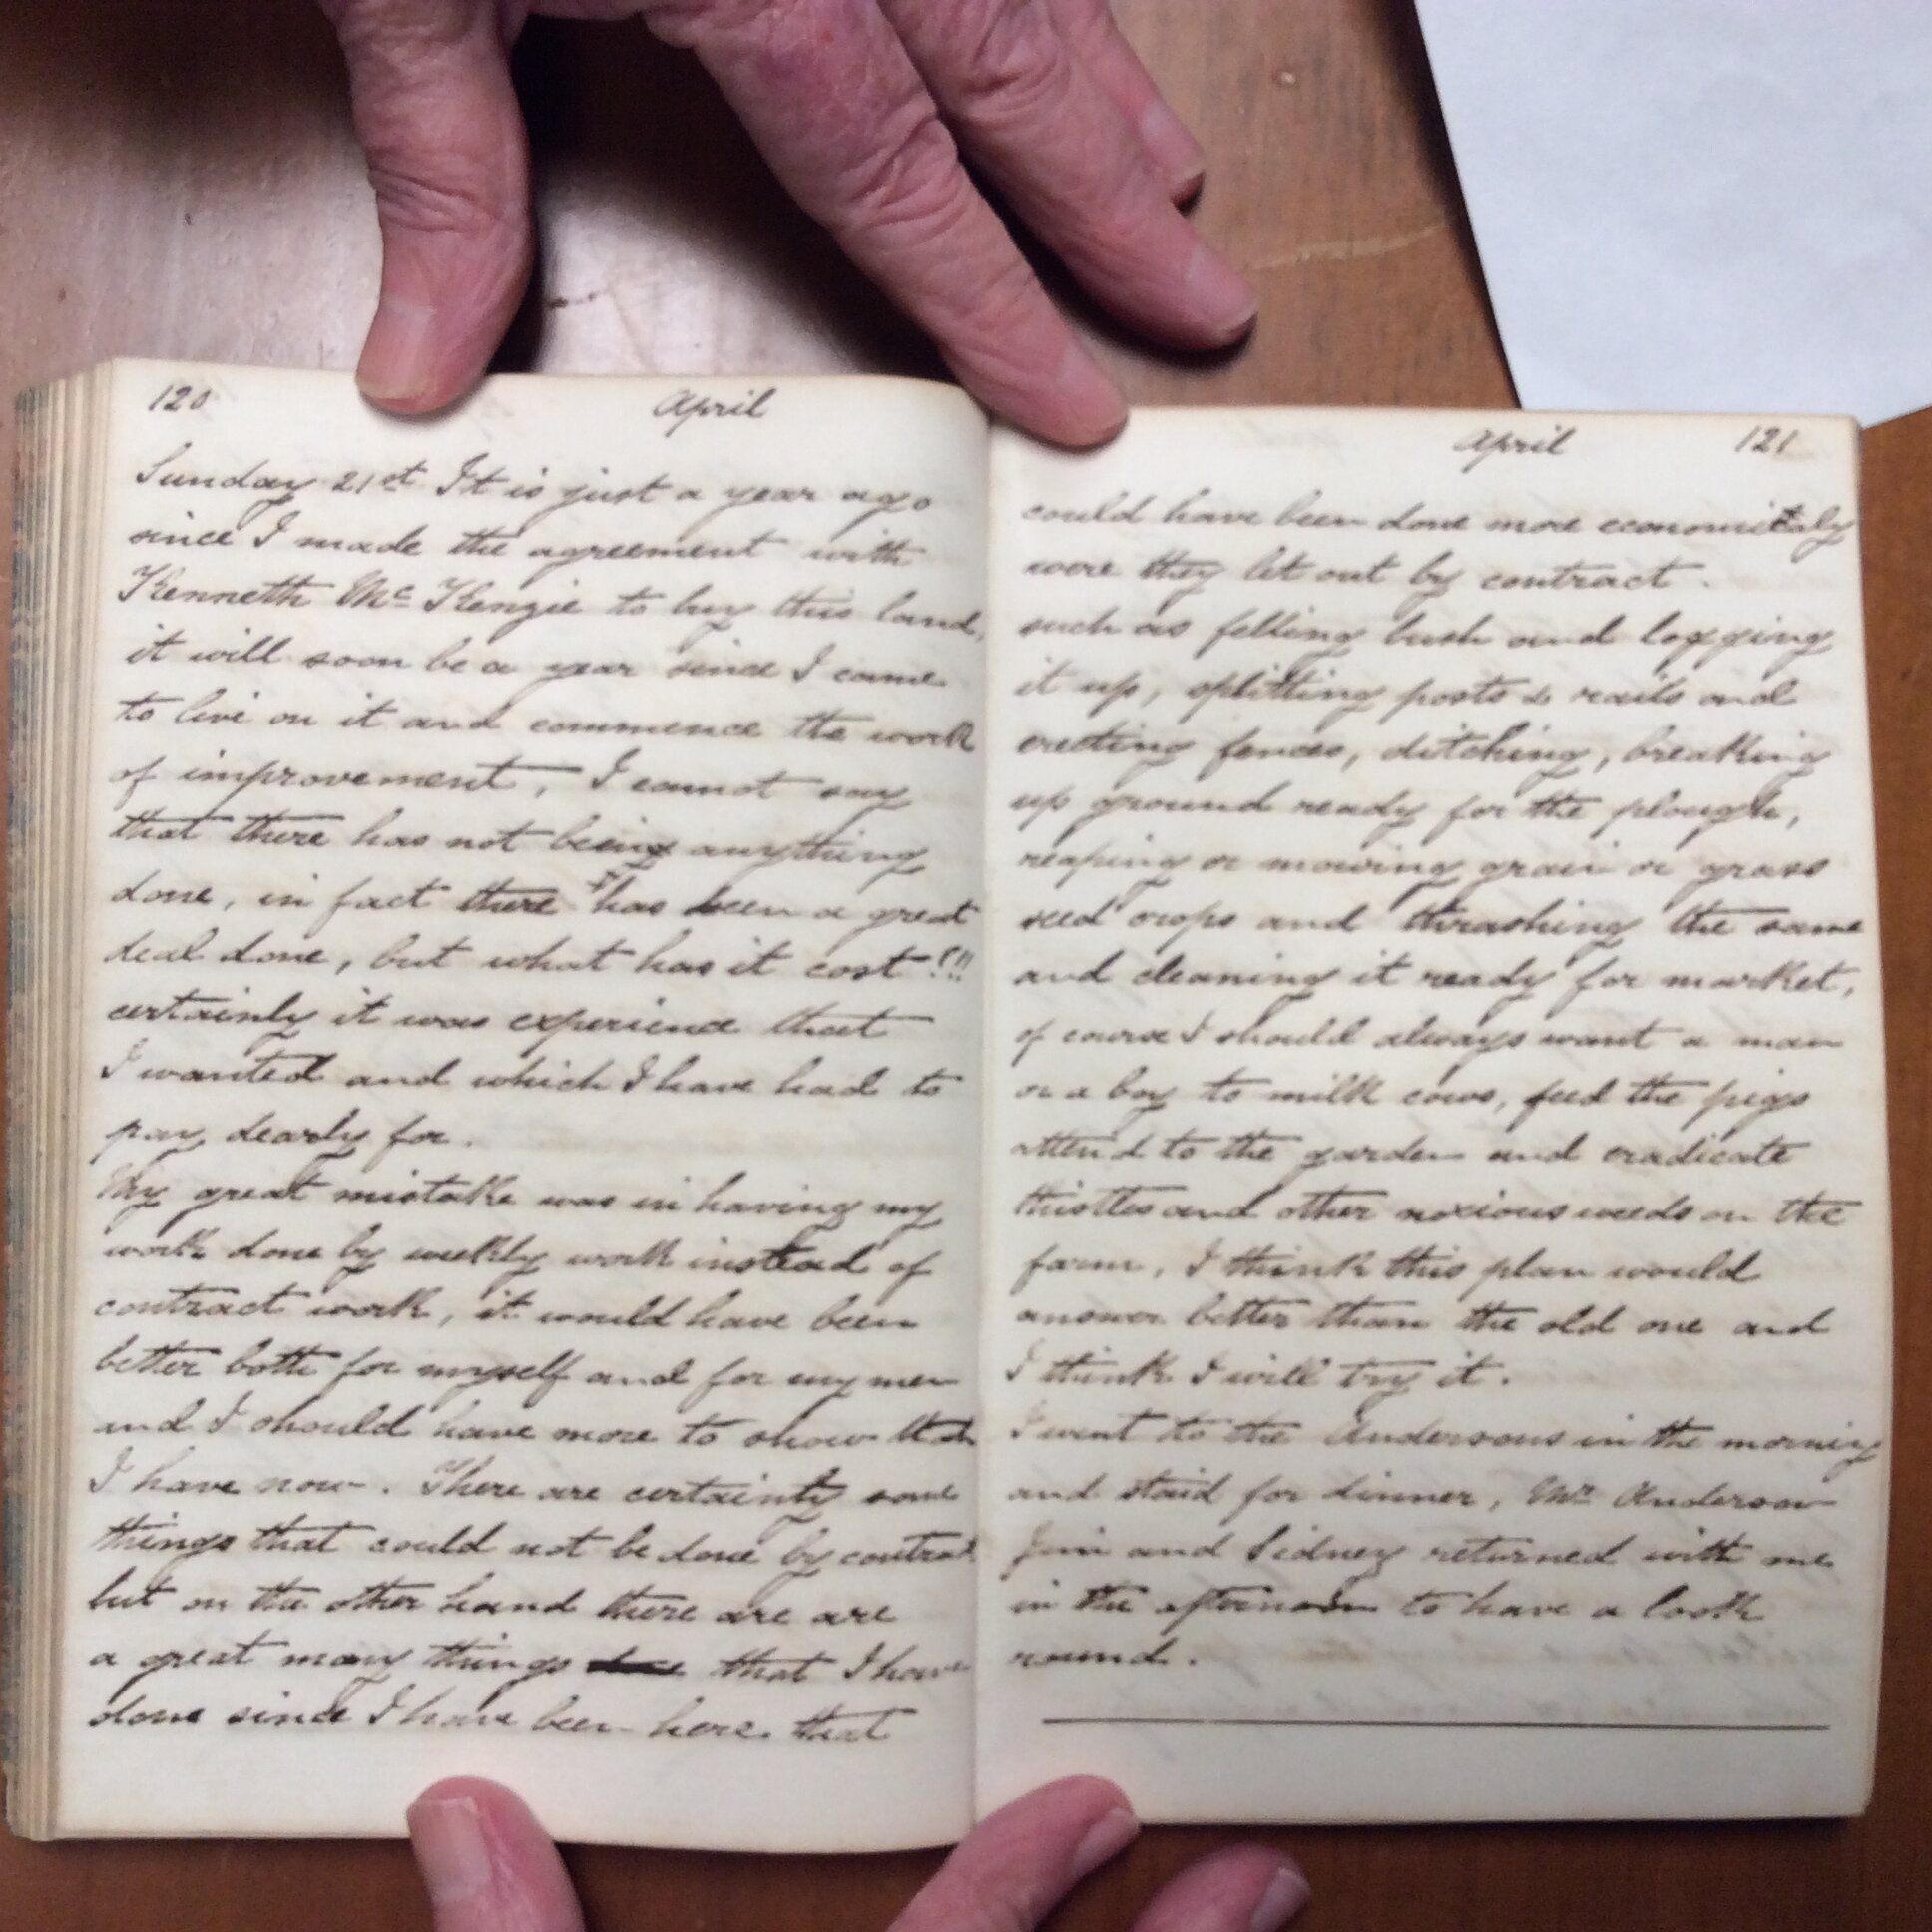 120 April
Sunday 21st It is just a year ago
since I made the agreement with
Kenneth Mc Kenzie to buy this land,
it will soon be a year since I came
to live on it and commence the work
of improvement, I cannot say
that there has not being anything
done, in fact there has been a great
deal done, but what has it cost!!!
certainly it was experience that
I wanted and which I have had to
pay dearly for.
My great mistake was in having my
work done by weekly work instead of
contract work, it would have been
better both for myself and for my men
and I should have more to show than
I have now. There are certainly some
things that could not be done by contract
but on the other hand there are are
a great many things that I have
done since I have been here that
April 121
could have been done more economicaly
were they let out by contract.
such as felling bush and logging
it up, splitting posts & rails and
erecting fences, ditching, breaking
up ground ready for the plough,
reaping or mowing grain or grass
seed crops and thrashing the same
and cleaning it ready for market,
of course I should always want a man
or a boy to milk cows, feed the pigs
attend to the garden and eradicate
thistles and other noxious weeds on the
farm, I think this plan would
answer better than the old one and
I think I will try it.
I went to the Andersons in the morning
and staid for dinner, Mr Anderson
Jim and Sidney returned with me
in the afternoon to have a look
round.